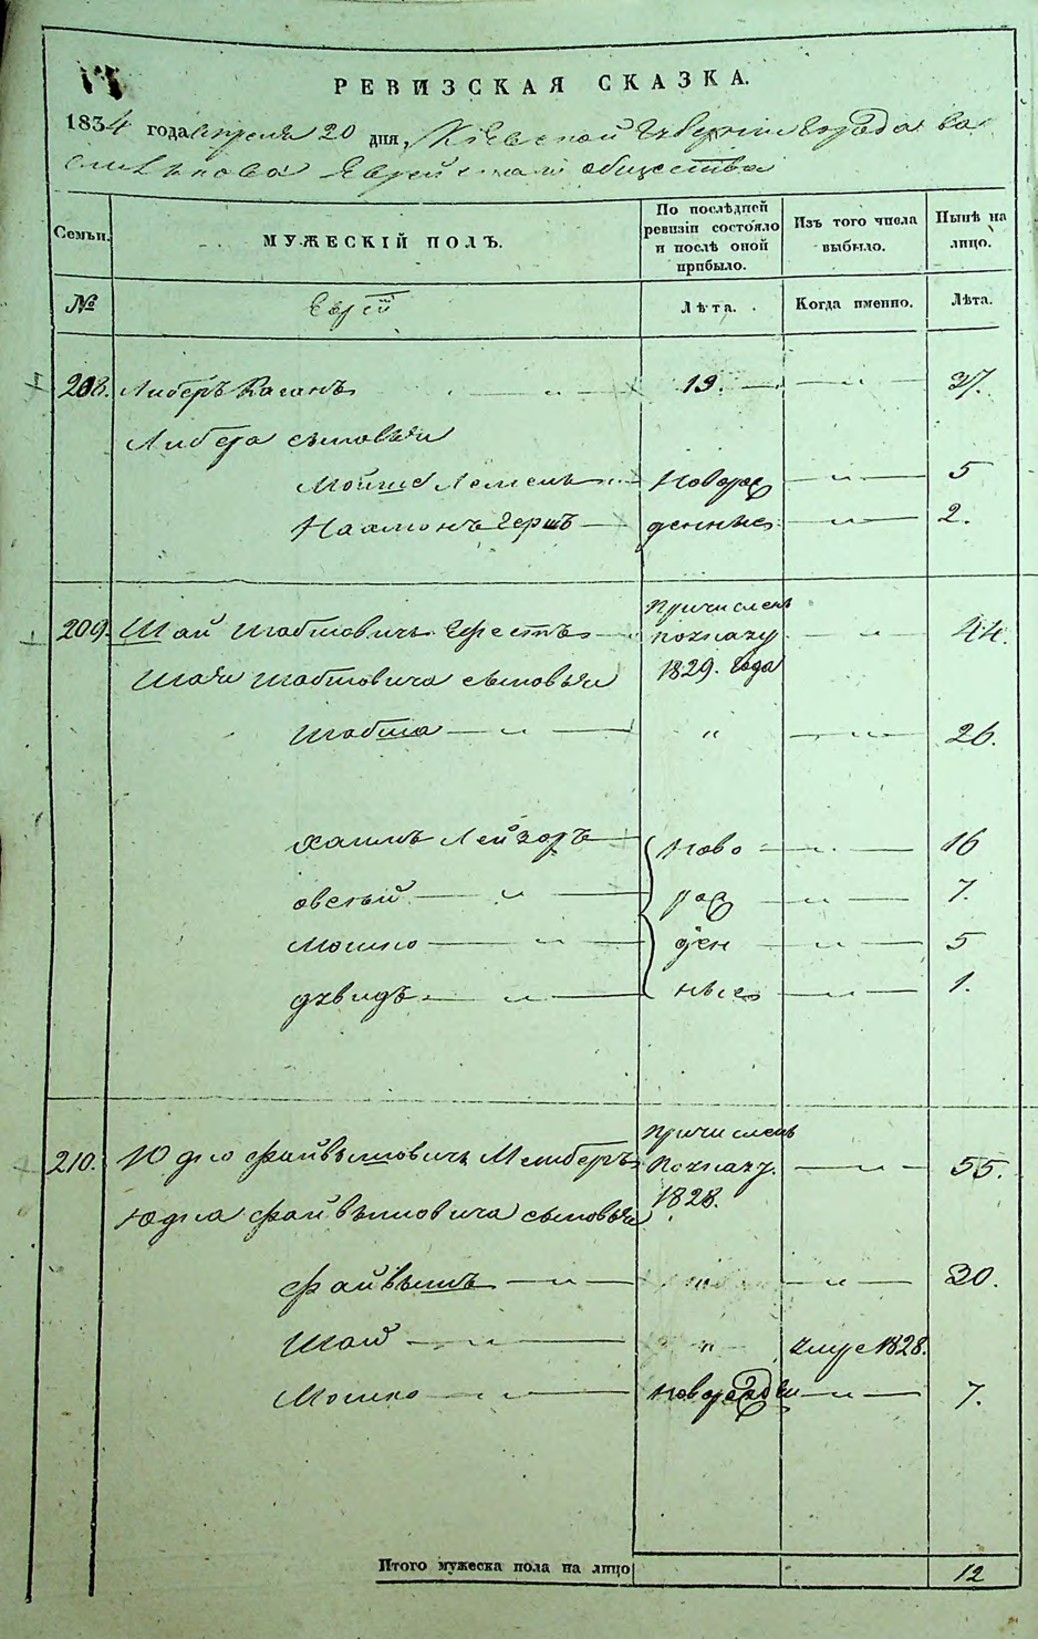 РЕВИЗСКАЯ СКАЗКА.
1834 года Апреля 20 дня, Кіевской Губерніи Города Ва
сильkова Еврейскаго общества
Семьи. МУЖЕСКІЙ ПОЛЪ. По послѣдней ревизіи состояло и послѣ оной прибыло. Изъ того числа выбыло. Нынѣ на лицо.
№ Еврей Лѣта. Когда именно. Лѣта.
208. Либеръ Каганъ 19. — „ — 37.
Либера сыновья
Мойше Лемель Новорож — „ — 5
Нахмонъ Гершъ денные — „ — 2.
209. Шай Шабшовичъ Причисленъ по указу 1829. года — „ — 44.
Шаи Шабшовича сыновья
Шабша — „ — „ — „ — 26.
Хаимъ Лейзоръ Ново — „ — 16
Овсѣй — „ — рож — „ — 7.
Мошко — „ — ден — „ — 5
Давидъ — „ — ные — „ — 1.
210. Юдко Файвышовичъ Причисленъ по указу. 1828. — „ — 55.
Юдка Файвышовича сыновья
Файвышъ — „ — „ — „ — 30.
Шай — „ — „ умре 1828.
Мошко — „ — новорожден — „ — 7.
Итого мужеска пола на лицо 12